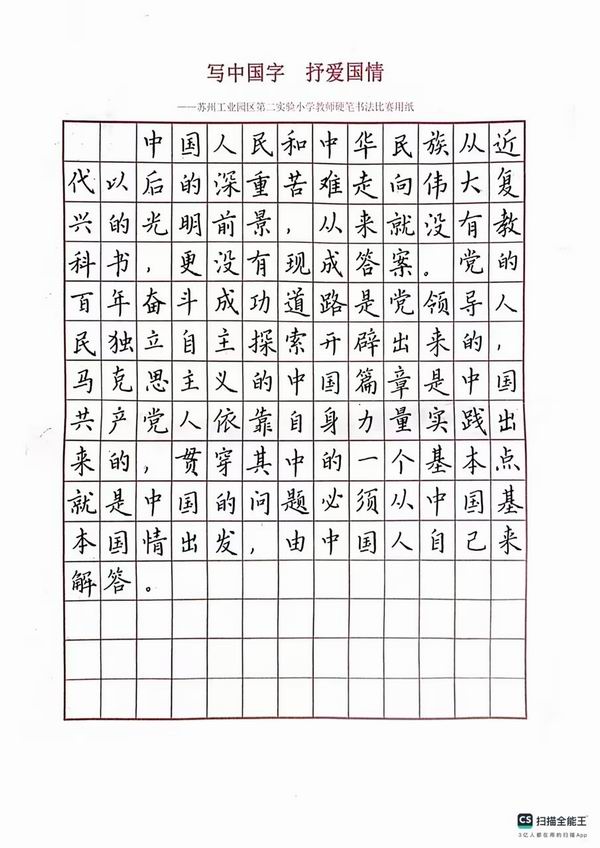 写中国字 抒爱国情
——苏州工业园区第二实验小学教师硬笔书法比赛用纸
中国人民和中华民族从近
代以后的深重苦难走向伟大复
兴的光明前景，从来就没有教
科书，更没有现成答案。党的
百年奋斗成功道路是党领导人
民独立自主探索开辟出来的，
马克思主义的中国篇章是中国
共产党人依靠自身力量实践出
来的，贯穿其中的一个基本点
就是中国的问题必须从中国基
本国情出发，由中国人自己来
解答。
CS 扫描全能王
3亿人都在用的扫描App